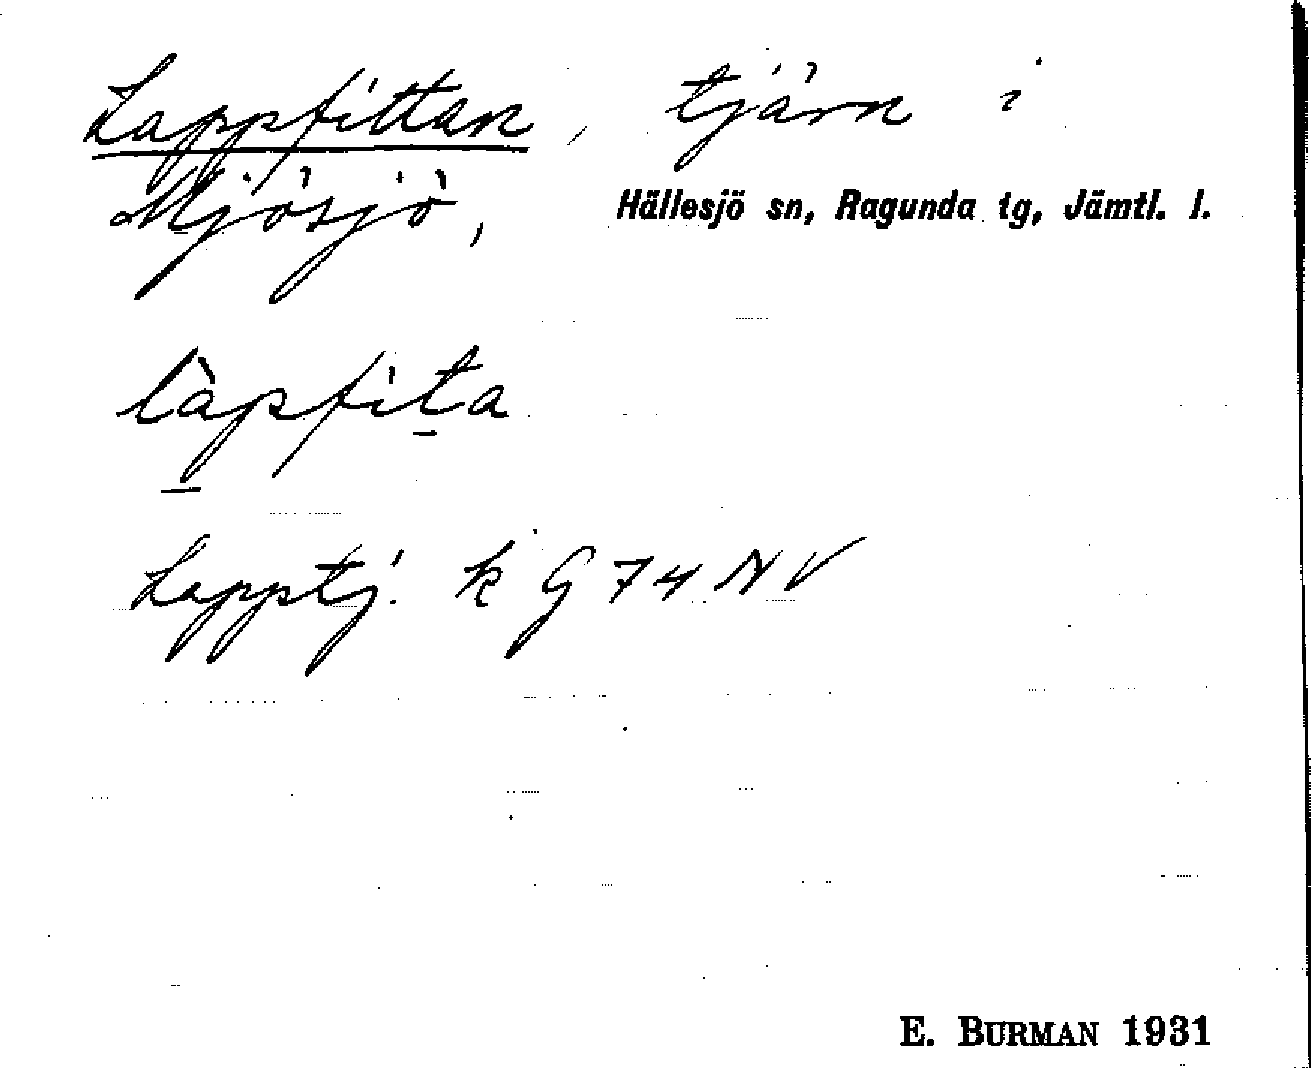 Lappfittan, tjärn i
Mjösjö, Hällesjö sn, Ragunda tg, Jämtl. l.
làpfita
Lappstj. k G 74 NV
E. BURMAN 1931